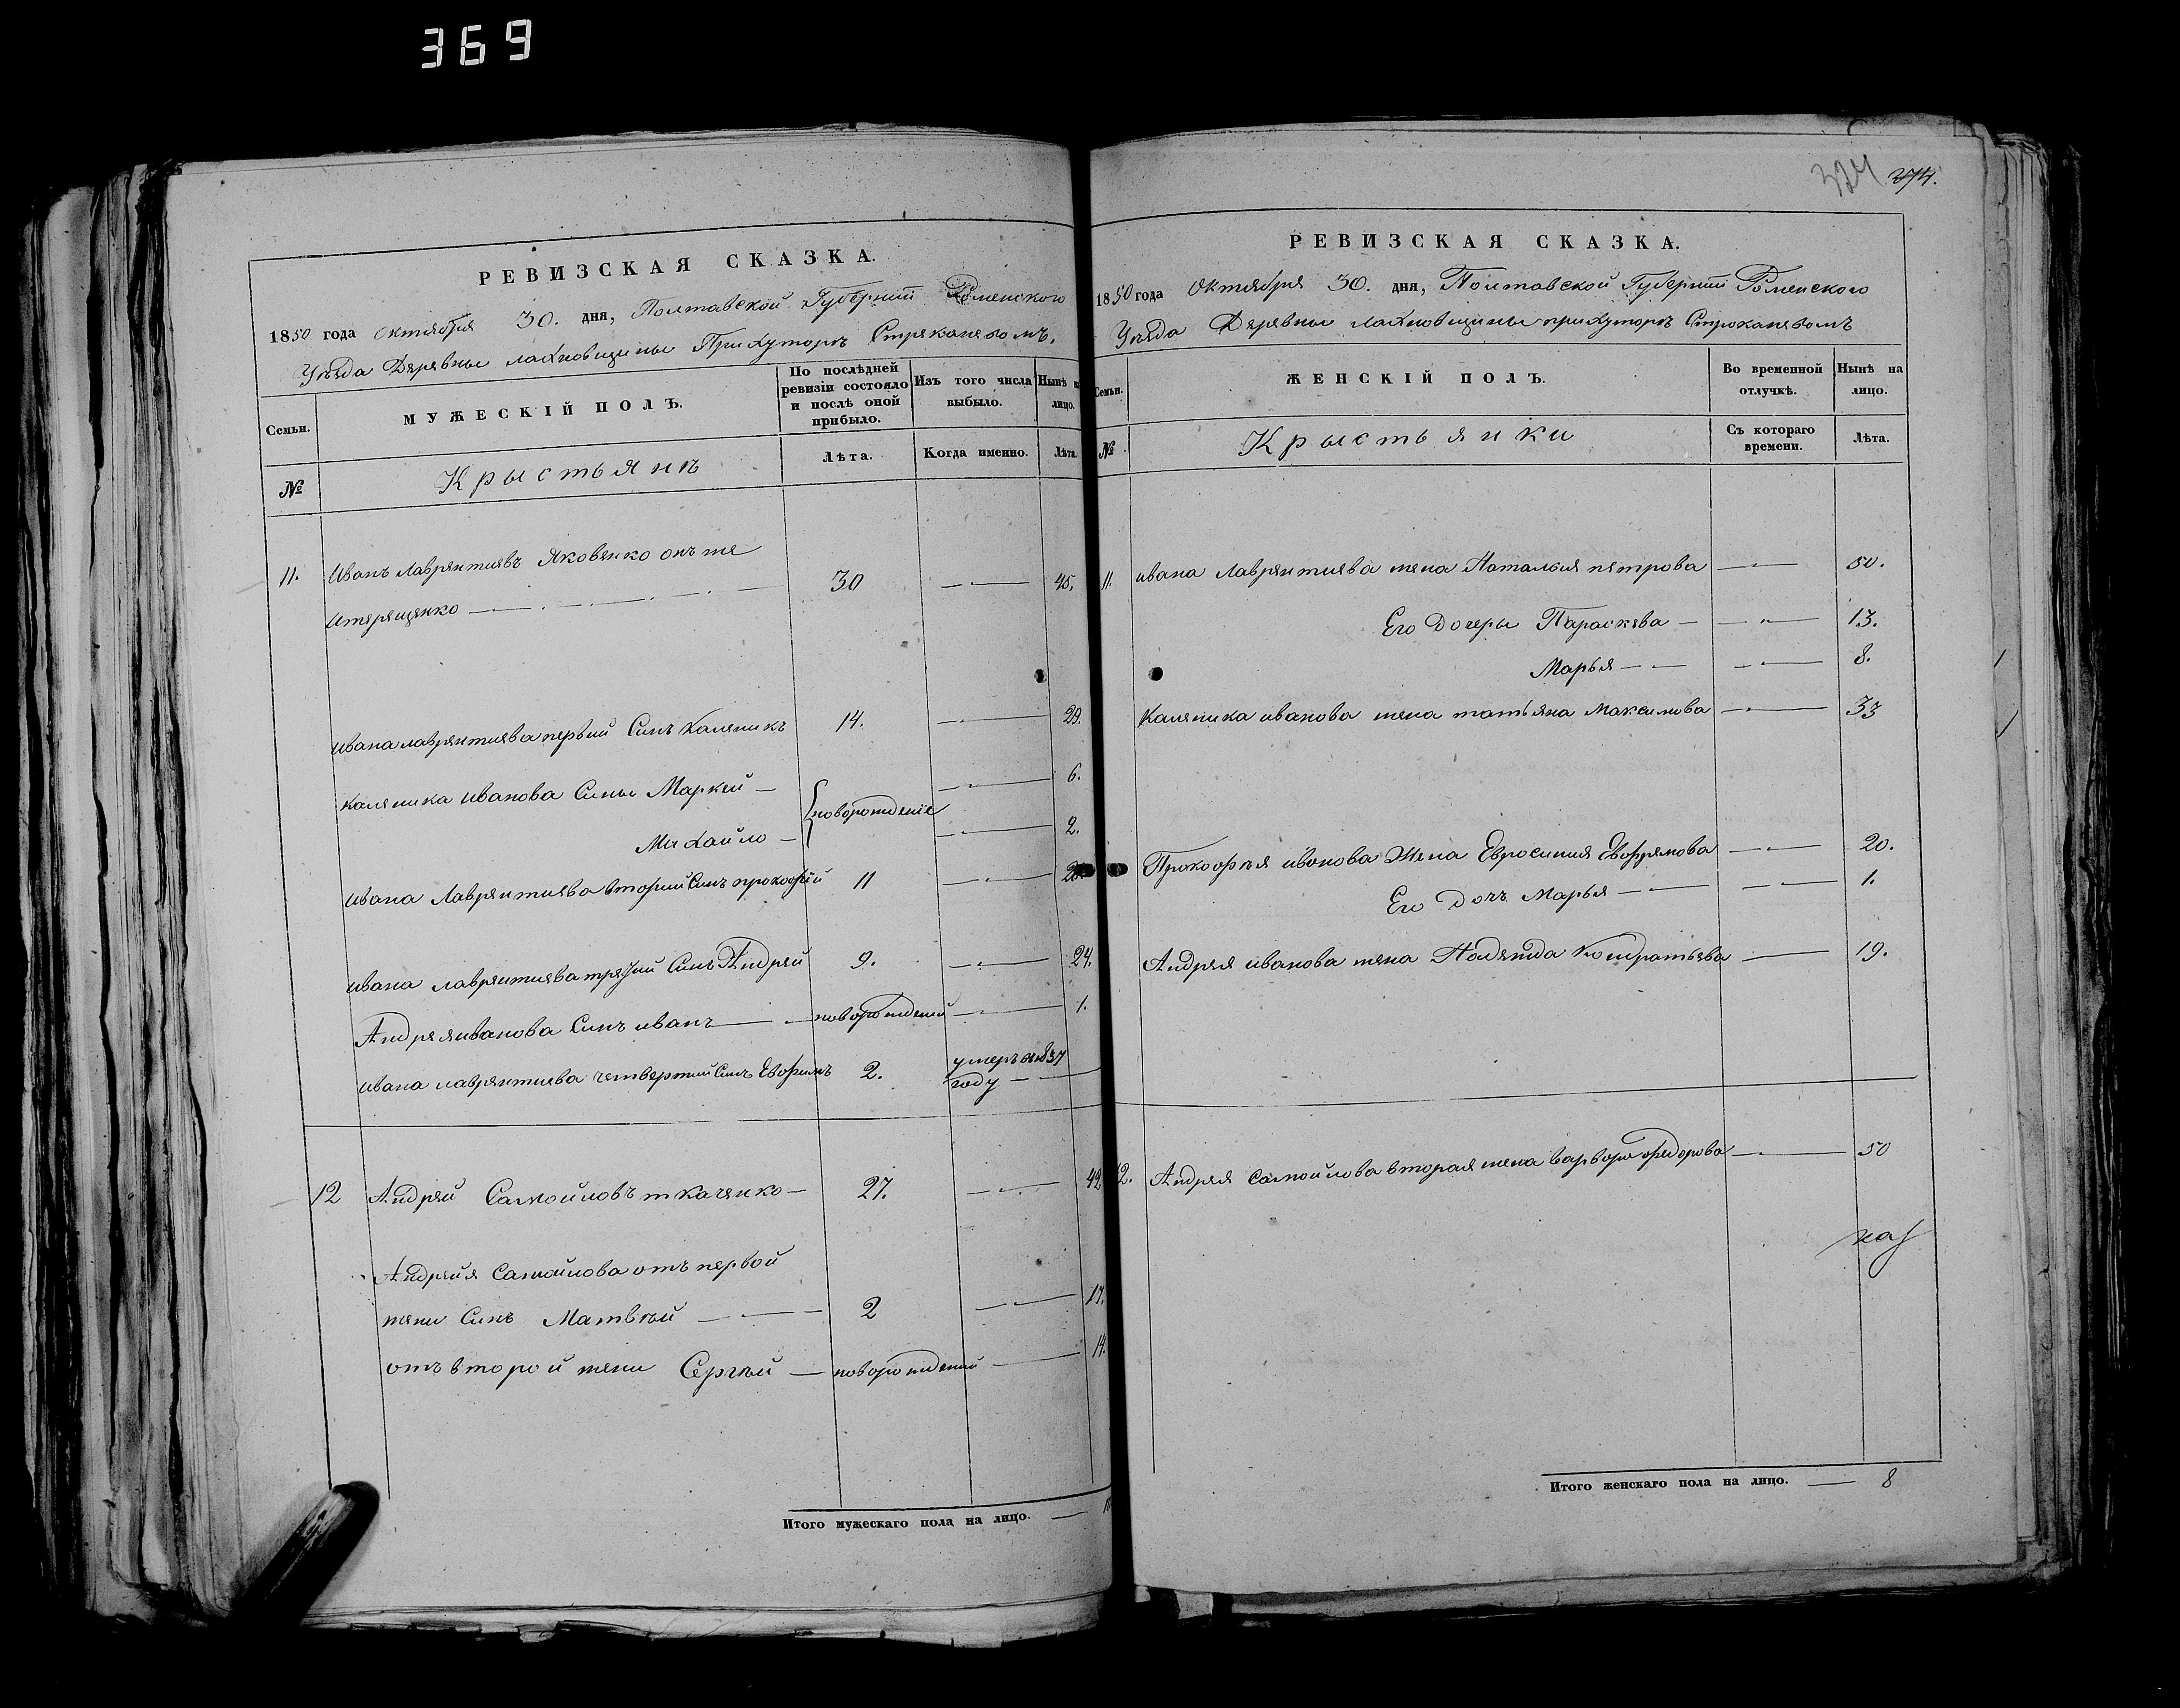 369
РЕВИЗСКАЯ СКАЗКА.
1850 года Октября 30. дня, Полтавской Губернии Роменского
Уезда Деревны лаХновщины При Хуторе
Семьи.
МУЖЕСКІЙ ПОЛЪ.
По послѣдней ревизіи состояло и послѣ оной прибыло.
Изъ того числа выбыло.
Нынѣ на лицо.
№
Крыстьянъ
Лѣта.
Когда именно.
Лѣта.
11. Иванъ Лаврентиевъ Яковенко онъ же 30 45.
Ивана лаврентиева первий Синъ Каленикъ 14. 29.
Каленика иванова Сины Маркей 6.
новорожденіе
МиХайло 2.
Ивана Лаврентиева вторий Синъ прокофій 11
Ивана лаврентиева третий Синъ Андрей 9. 24.
Андрея иванова Синъ иванъ новорождений 1.
Ивана лаврентиева четвертий Синъ Евфимъ 2. умеръ 1837
году
12 Андрей Самойловъ ткаченко 27. 42
Андрея Самойлова отъ первой
жени Синъ Матвѣй 2 17.
отъ второй жени Сергѣй новорожденний 14.
Итого мужескаго пола на лицо.
374 374.
РЕВИЗСКАЯ СКАЗКА.
1850 года Октября 30. дня, Полтавской Губернии Роменского
Уезда Деревны лаХновщины при Хуторе
Семьи.
ЖЕНСКІЙ ПОЛЪ.
Во временной отлучкѣ.
Нынѣ на лицо.
№
Крыстьянки
Съ котораго времени.
Лѣта.
11. Ивана Лаврентиева жена Наталья петрова 50.
Его Дочеры Параскева 13.
Марья 8.
Каленика иванова жена татьяна Максимова 33
Прокофья иванова Жена Евросиния Евфремова 20.
Его Дочъ Марья 1.
Андрея иванова жена Надежда Кондратьева 19.
12. Андрея Самойлова вторая жена варвара федорова 50
Итого женскаго пола на лицо. 8